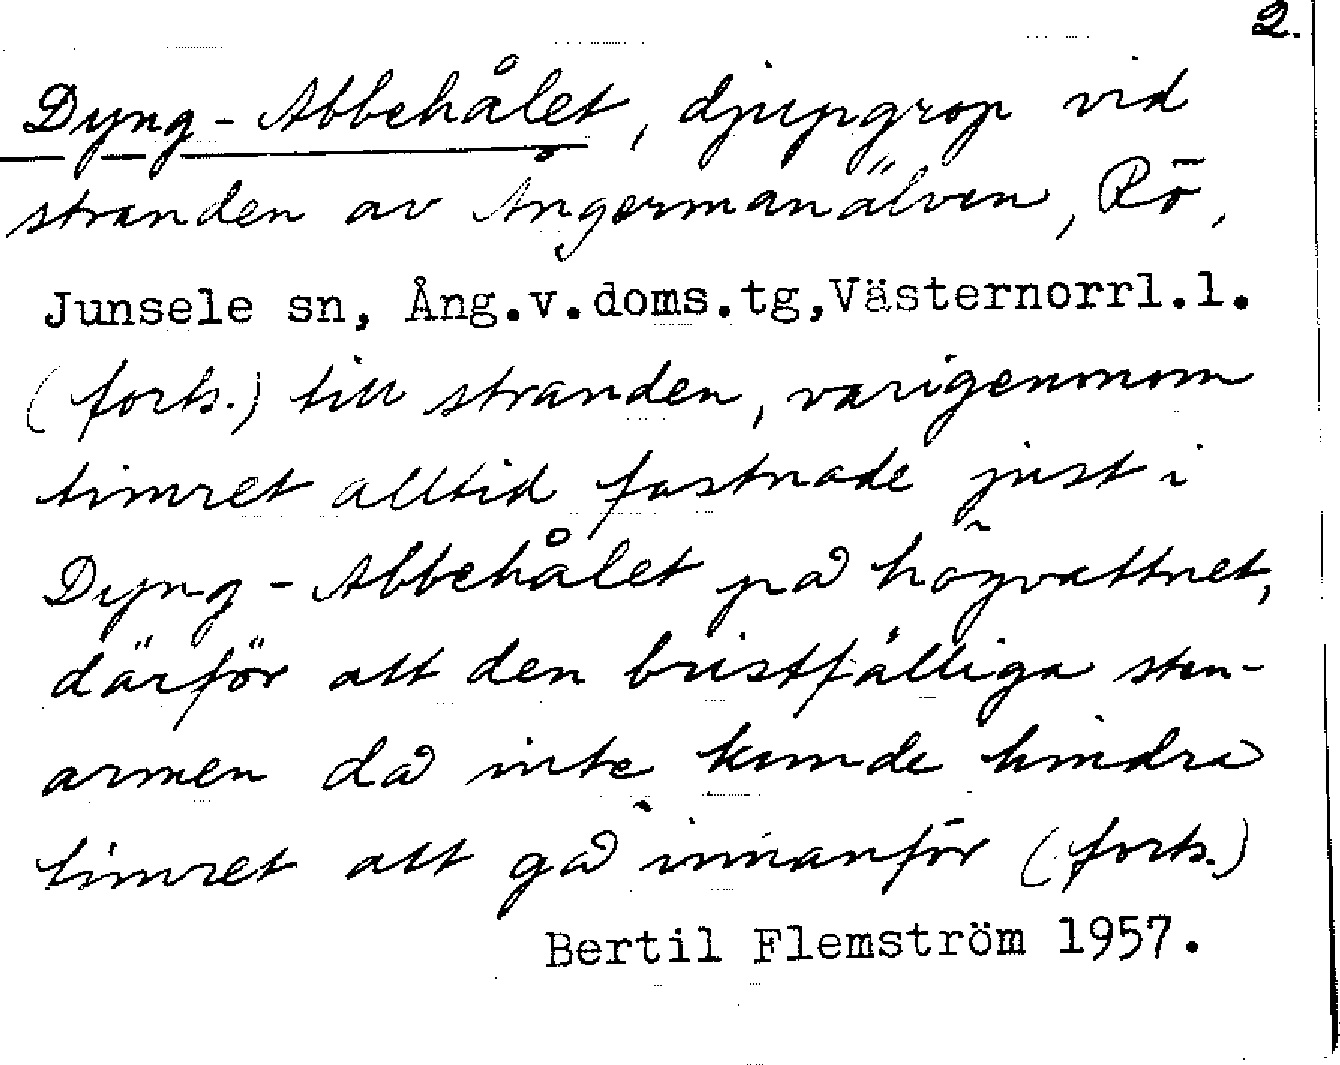 2.
Dyng-Abbehålet, djupgrop vid
stranden av Ångermanälven, Rö,
Junsele sn, Ång.v.doms.tg,Västernorrl.l.
(forts.) till stranden, varigenom
timret alltid fastnade just i
Dyng-Abbehålet på högvattnet,
därför att den bristfälliga sten-
armen då inte kunde hindra
timret att gå innanför (forts.)
Bertil Flemström 1957.